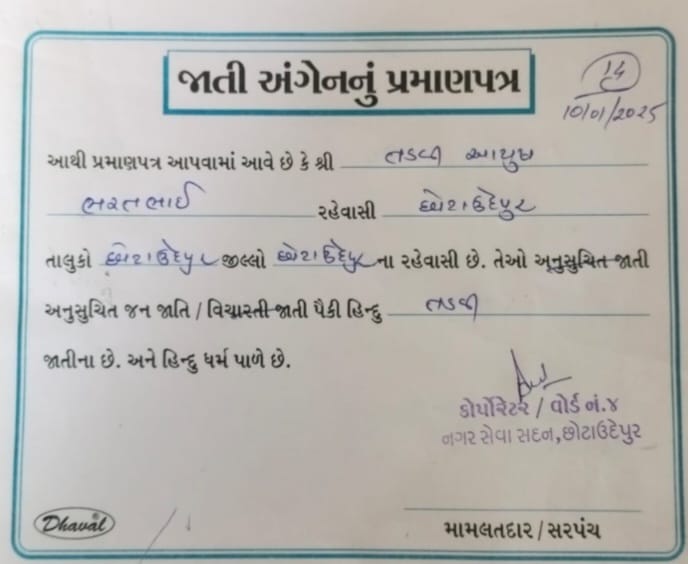 જાતી અંગેનનું પ્રમાણપત્ર
૧૬
10/01/2025
આથી પ્રમાણપત્ર આપવામાં આવે છે કે શ્રી તડવી આયુષ
ભરતભાઈ રહેવાસી છોટાઉદેપુર
તાલુકો છોટાઉદેપુર જીલ્લો છોટાઉદેપુર ના રહેવાસી છે. તેઓ અનુસુચિત જાતી
અનુસુચિત જન જાતિ / વિચારતી જાતી પૈકી હિન્દુ તડવી
જાતીના છે. અને હિન્દુ ધર્મ પાળે છે.
કોર્પોરેટર / વોર્ડ નં.૪
નગર સેવા સદન, છોટાઉદેપુર
Dhaval®
મામલતદાર / સરપંચ